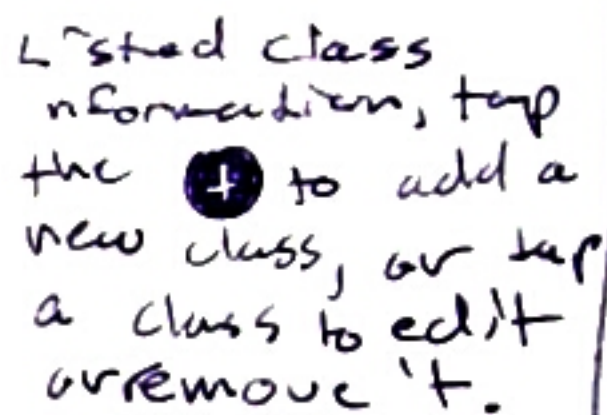 Listed class
information, tap
the + to add a
new class, or tap
a class to edit
or remove it.